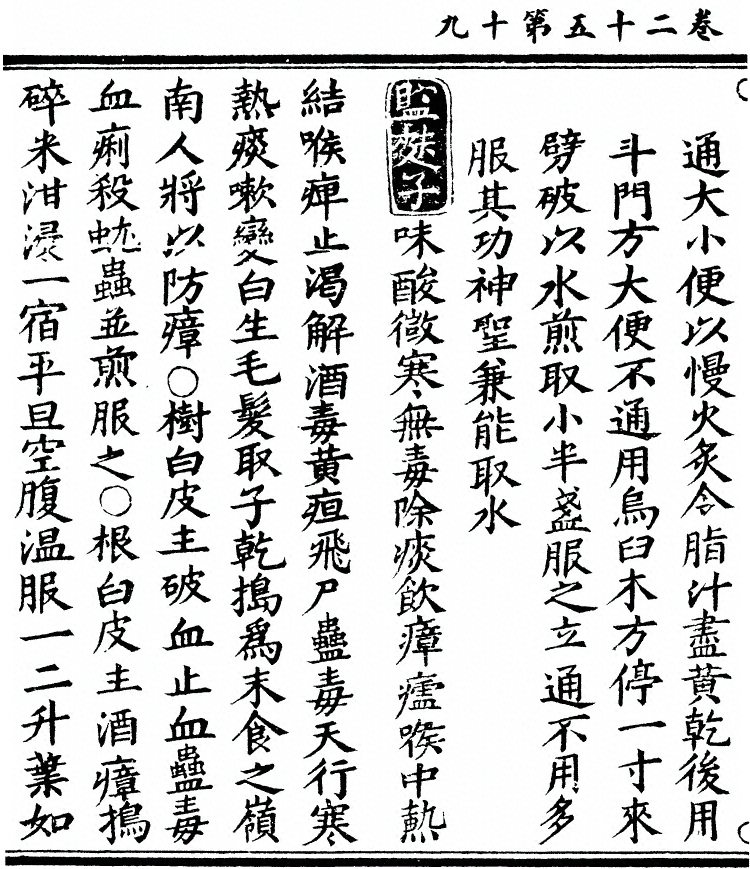 卷二十五第十九
通大小便以慢火炙令脂汁盡黃乾後用
斗門方大便不通用烏臼木方停一寸來
劈破以水煎取小半盞服之立通不用多
服其功神聖兼能取水
鹽麩子味酸微寒無毒除痰飲瘴瘧喉中熱
結喉痺止渴解酒毒黃疸飛尸蠱毒天行寒
熱痰嗽變白生毛髮取子乾搗爲末食之嶺
南人將以防瘴○樹白皮主破血止血蠱毒
血痢殺蚘蟲並煎服之○根白皮主酒瘴搗
碎米泔浸一宿平旦空腹溫服一二升葉如